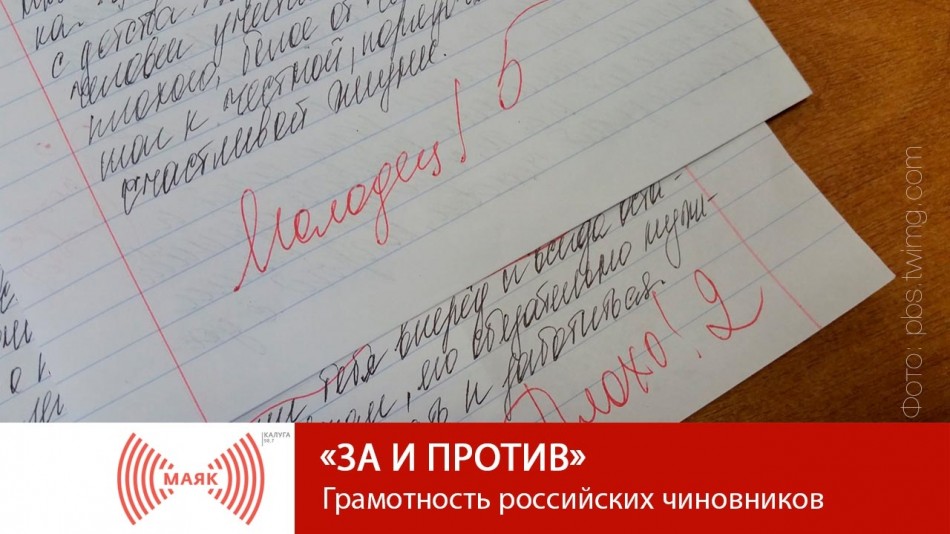 ка-
с детства,
человек
плохого, белое от
шая к честной,
счастливой жизни.
Молодец! 5
тебя вперёд и всегда оста-
его обязательно нужн-
ть и заботиться.
Плохо! 2
о к
Фото: pbs.twimg.com
КАЛУГА
МАЯК
«ЗА И ПРОТИВ»
Грамотность российских чиновников